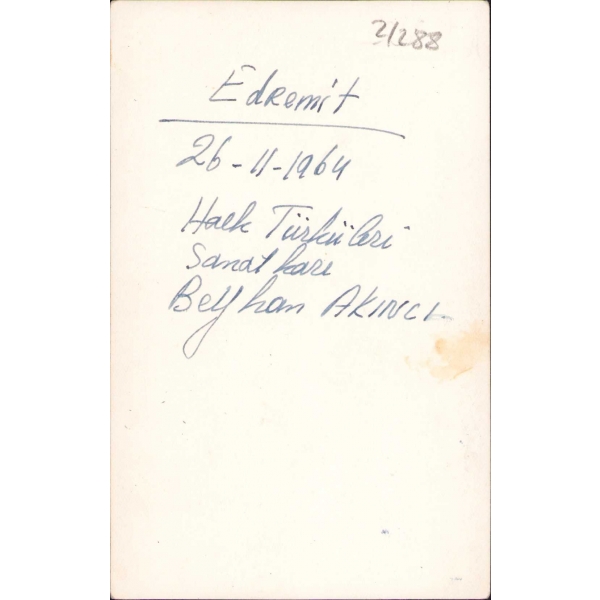 2/288
Edremit
26-11-1964
Halk Türküleri
Sanatkarı
Beyhan AKINCI